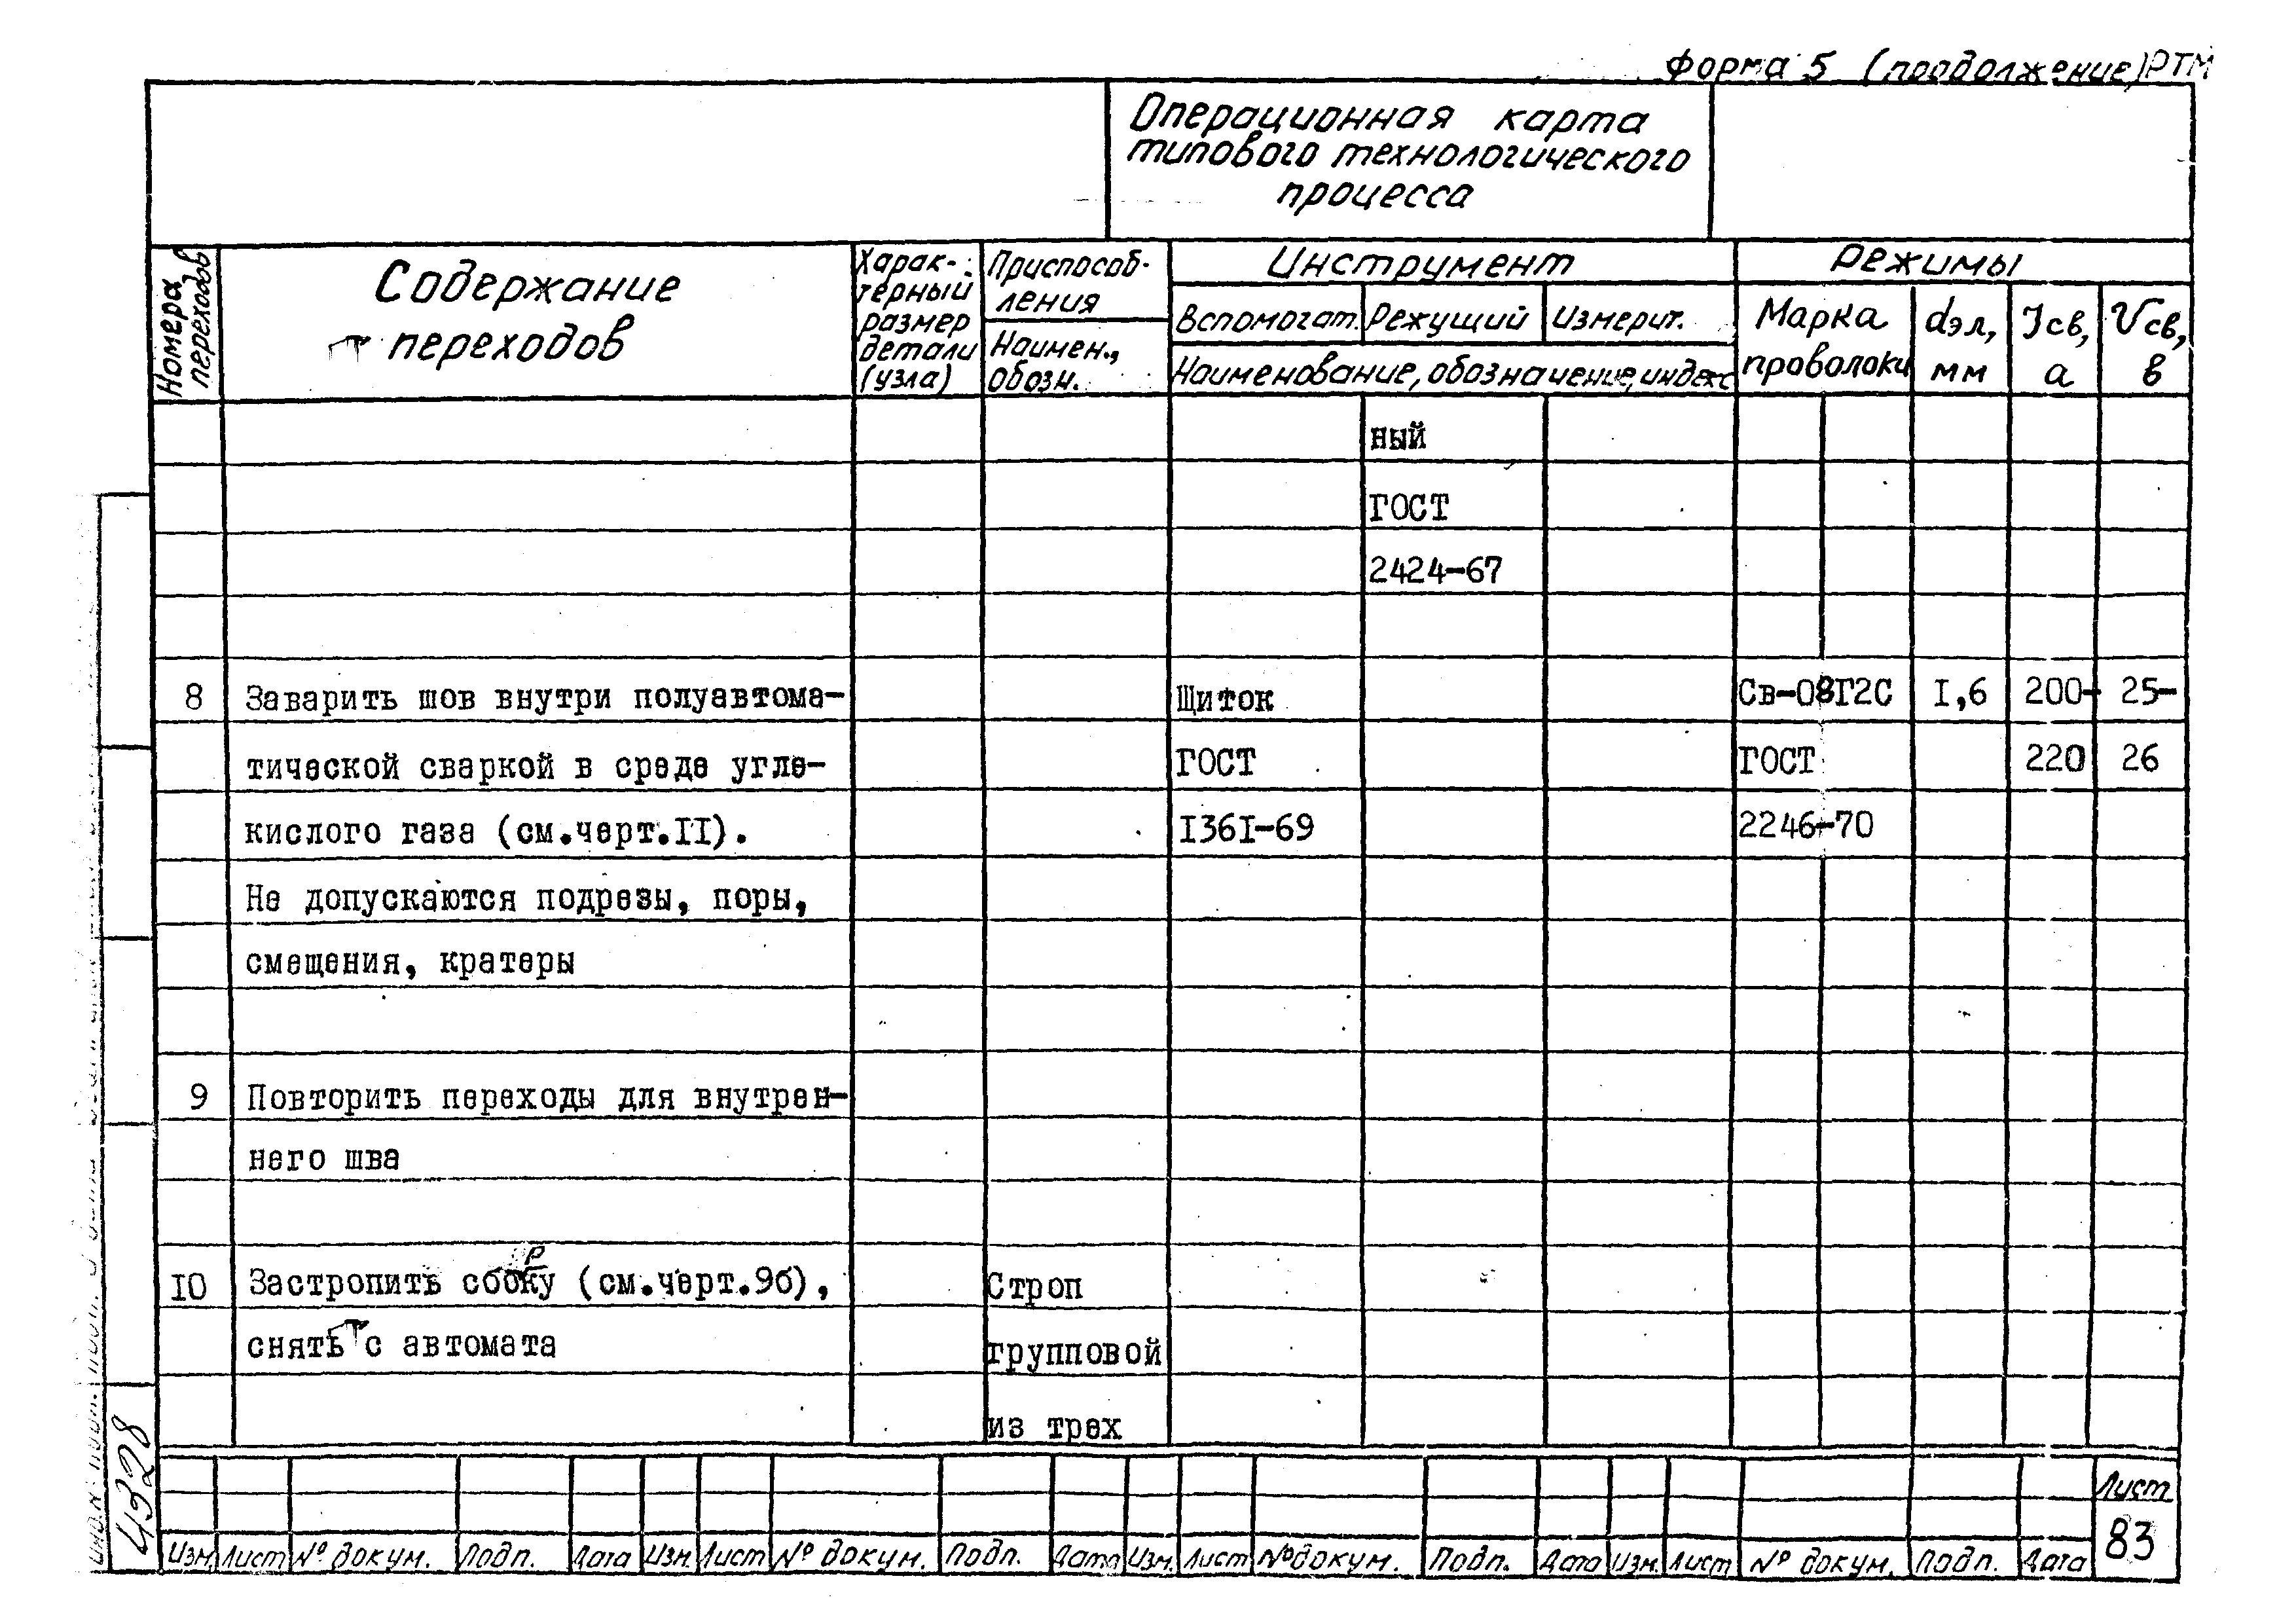 Форма 5 (продолжение) РТМ
Операционная карта
типового технологического
процесса
Номера переходов
Содержание
переходов
Харак-
терный
размер
детали
(узла)
Приспособ-
ления
Наимен.,
обозн.
Инструмент
Вспомогат. Режущий Измерит.
Наименование, обозначение, индекс
Режимы
Марка
проволоки
dэл,
мм
Jсв,
а
Vсв,
в
ный
ГОСТ
2424-67
8 Заварить шов внутри полуавтома- Щиток Св-08Г2С I,6 200- 25-
тической сваркой в среде угле- ГОСТ ГОСТ 220 26
кислого газа (см.черт.II). I36I-69 2246-70
Не допускаются подрезы, поры,
смещения, кратеры
9 Повторить переходы для внутрен-
него шва
I0 Застропить сборку (см.черт.9б), Строп
снять с автомата групповой
из трех
Изм. Лист № докум. Подп. Дата Изм. Лист № докум. Подп. Дата Изм. Лист № докум. Подп. Дата Изм. Лист № докум. Подп. Дата
Лист
83
4328